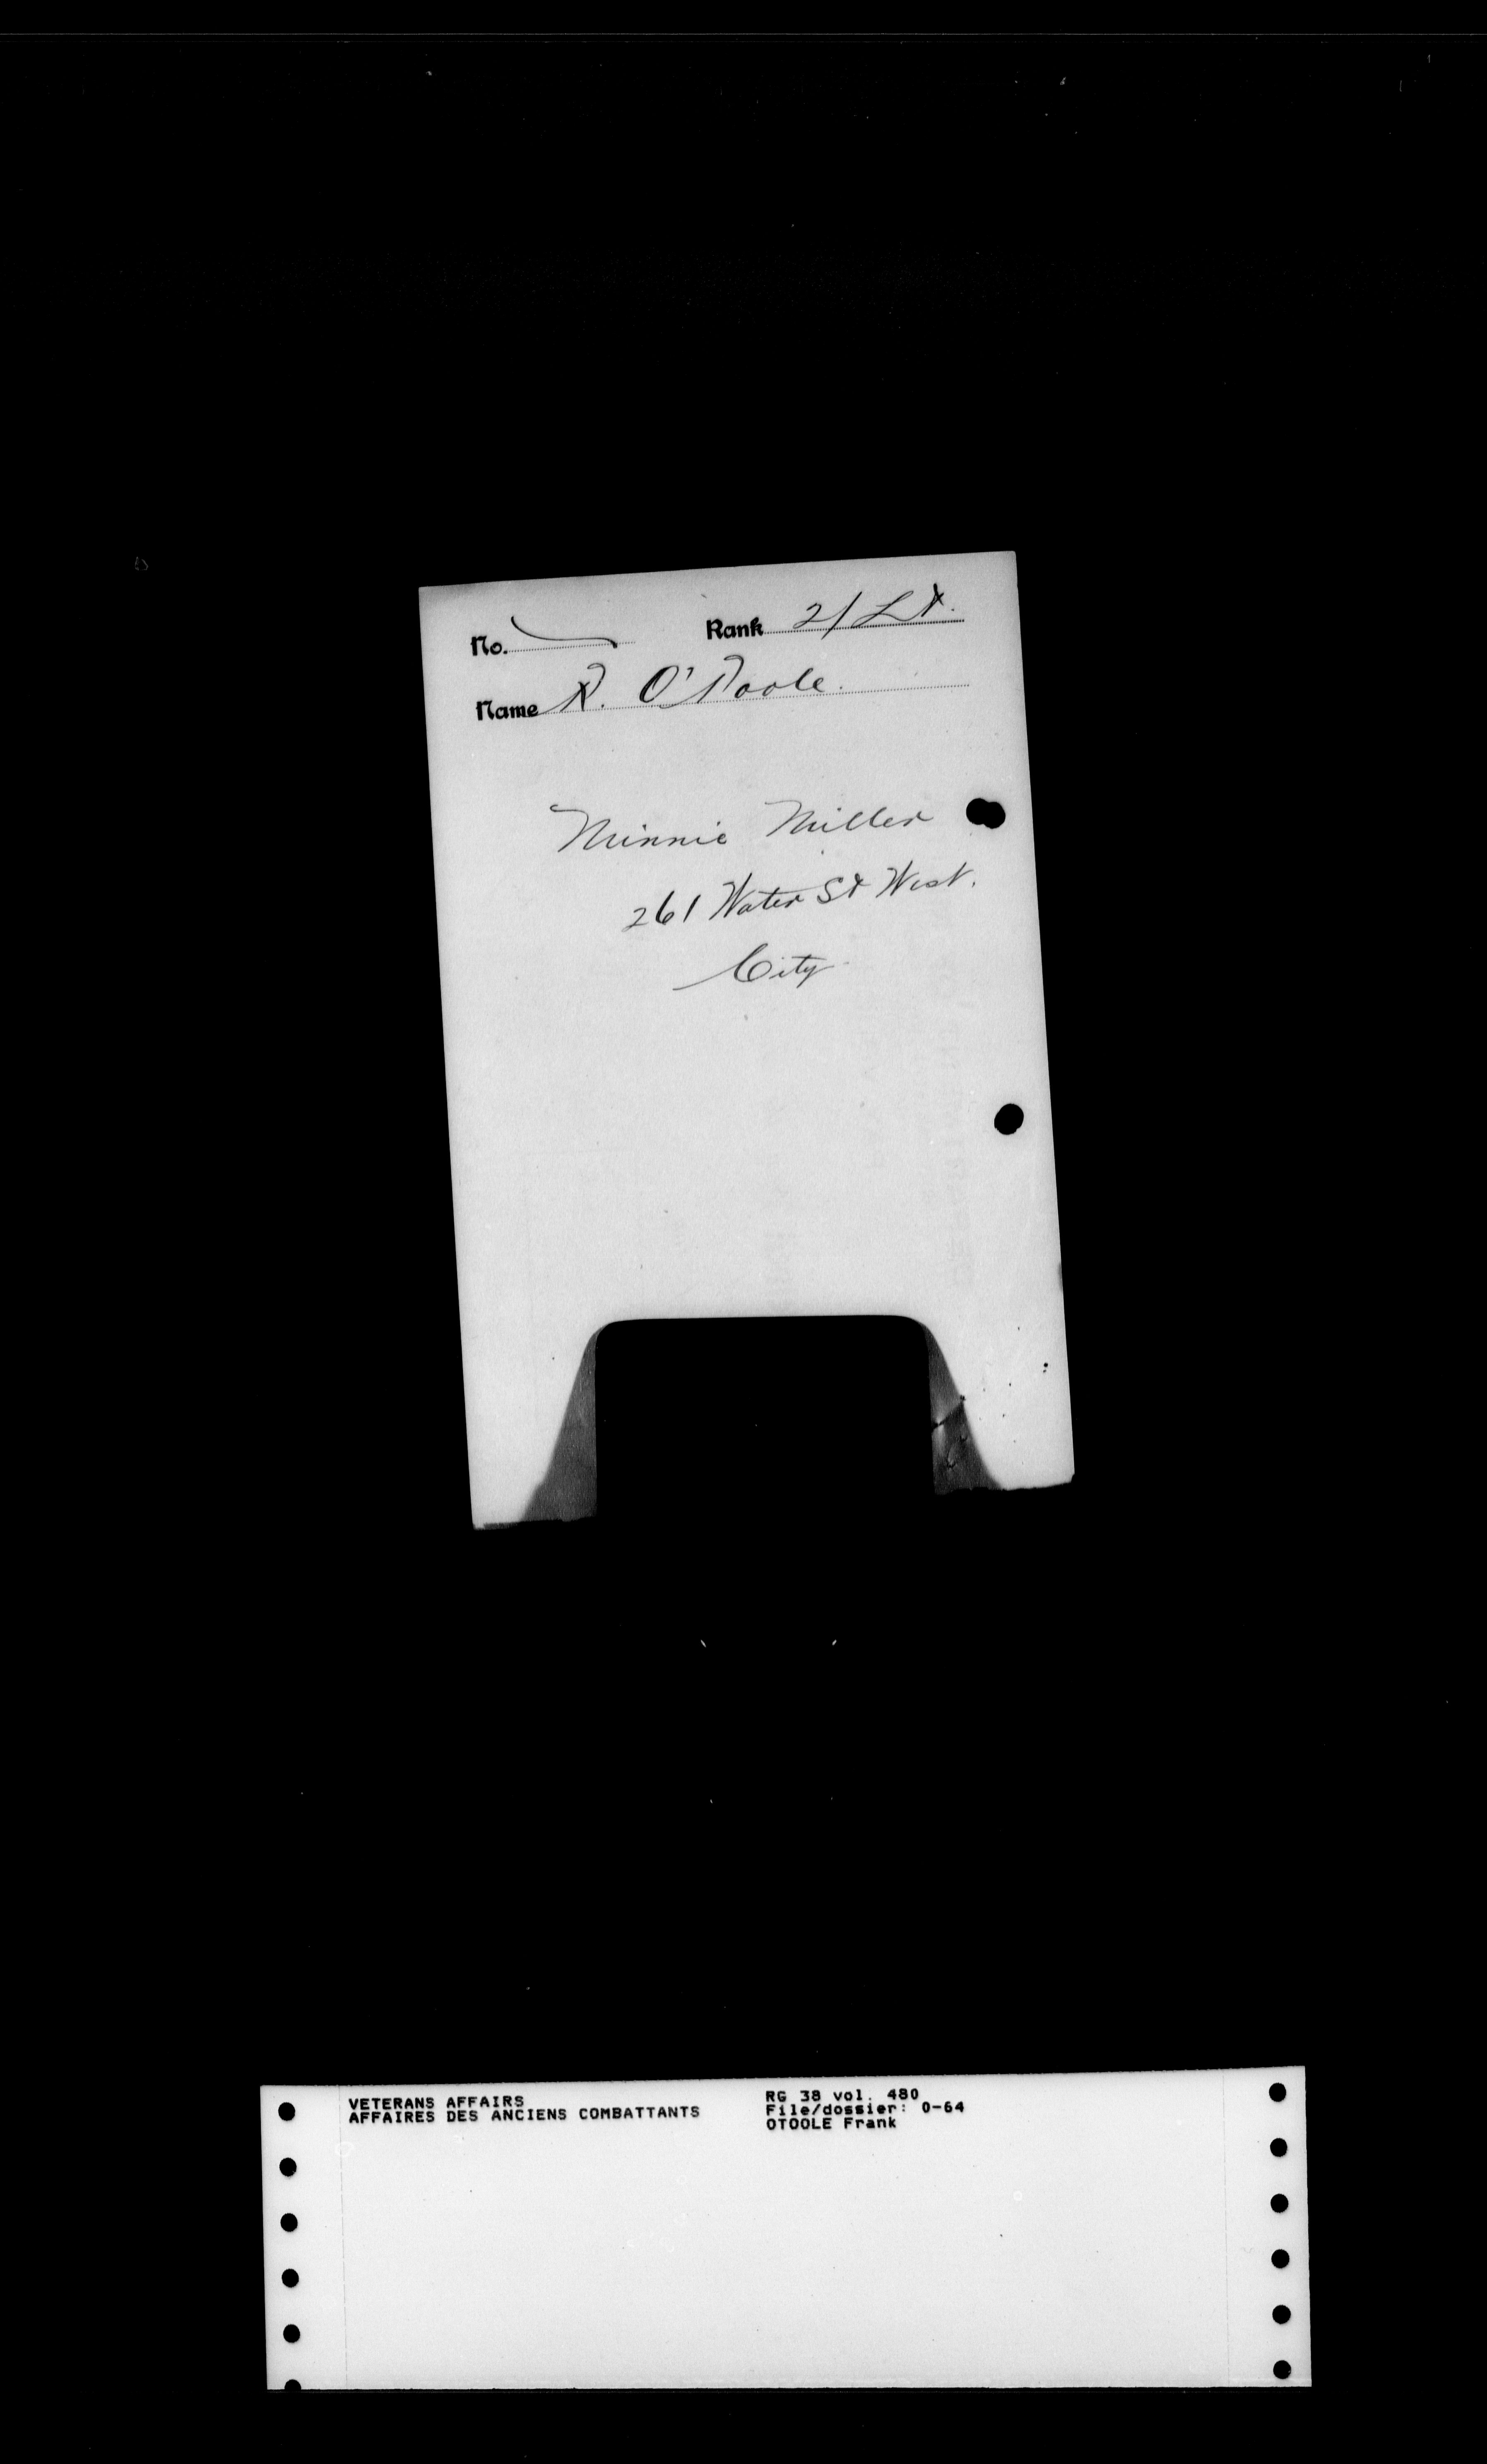 No. Rank 2/Lt.
Name R. O'Toole.
Minnie Miller
261 Water St West.
City
VETERANS AFFAIRS
AFFAIRES DES ANCIENS COMBATTANTS
RG 38 vol. 480
File/dossier: O-64
OTOOLE Frank